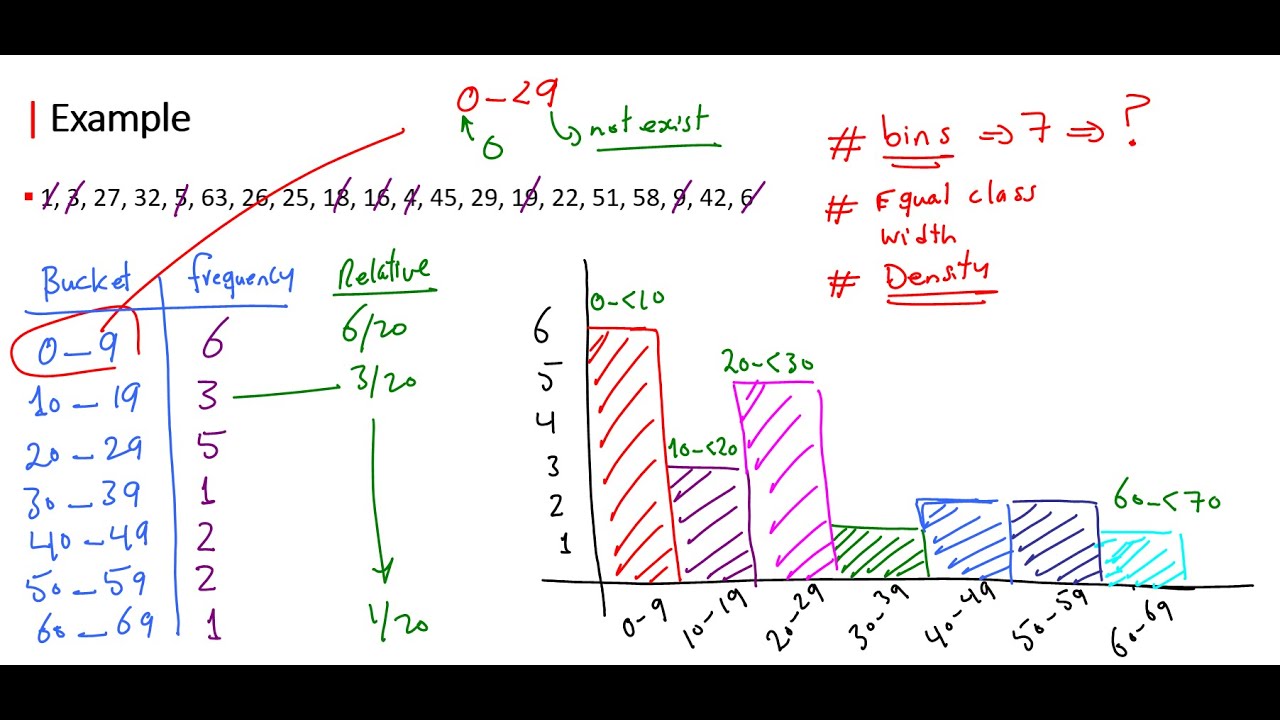 Example
0-29
0
not exist
# bins ⇒ 7 ⇒ ?
# Equal class
width
# Density
1, 3, 27, 32, 5, 63, 26, 25, 18, 16, 4, 45, 29, 19, 22, 51, 58, 9, 42, 6
Bucket frequency Relative
0-9 6 6/20
10-19 3 3/20
20-29 5
30-39 1
40-49 2
50-59 2
60-69 1 1/20
0-<10
20-<30
10-<20
60-<70
6
5
4
3
2
1
0-9 10-19 20-29 30-39 40-49 50-59 60-69